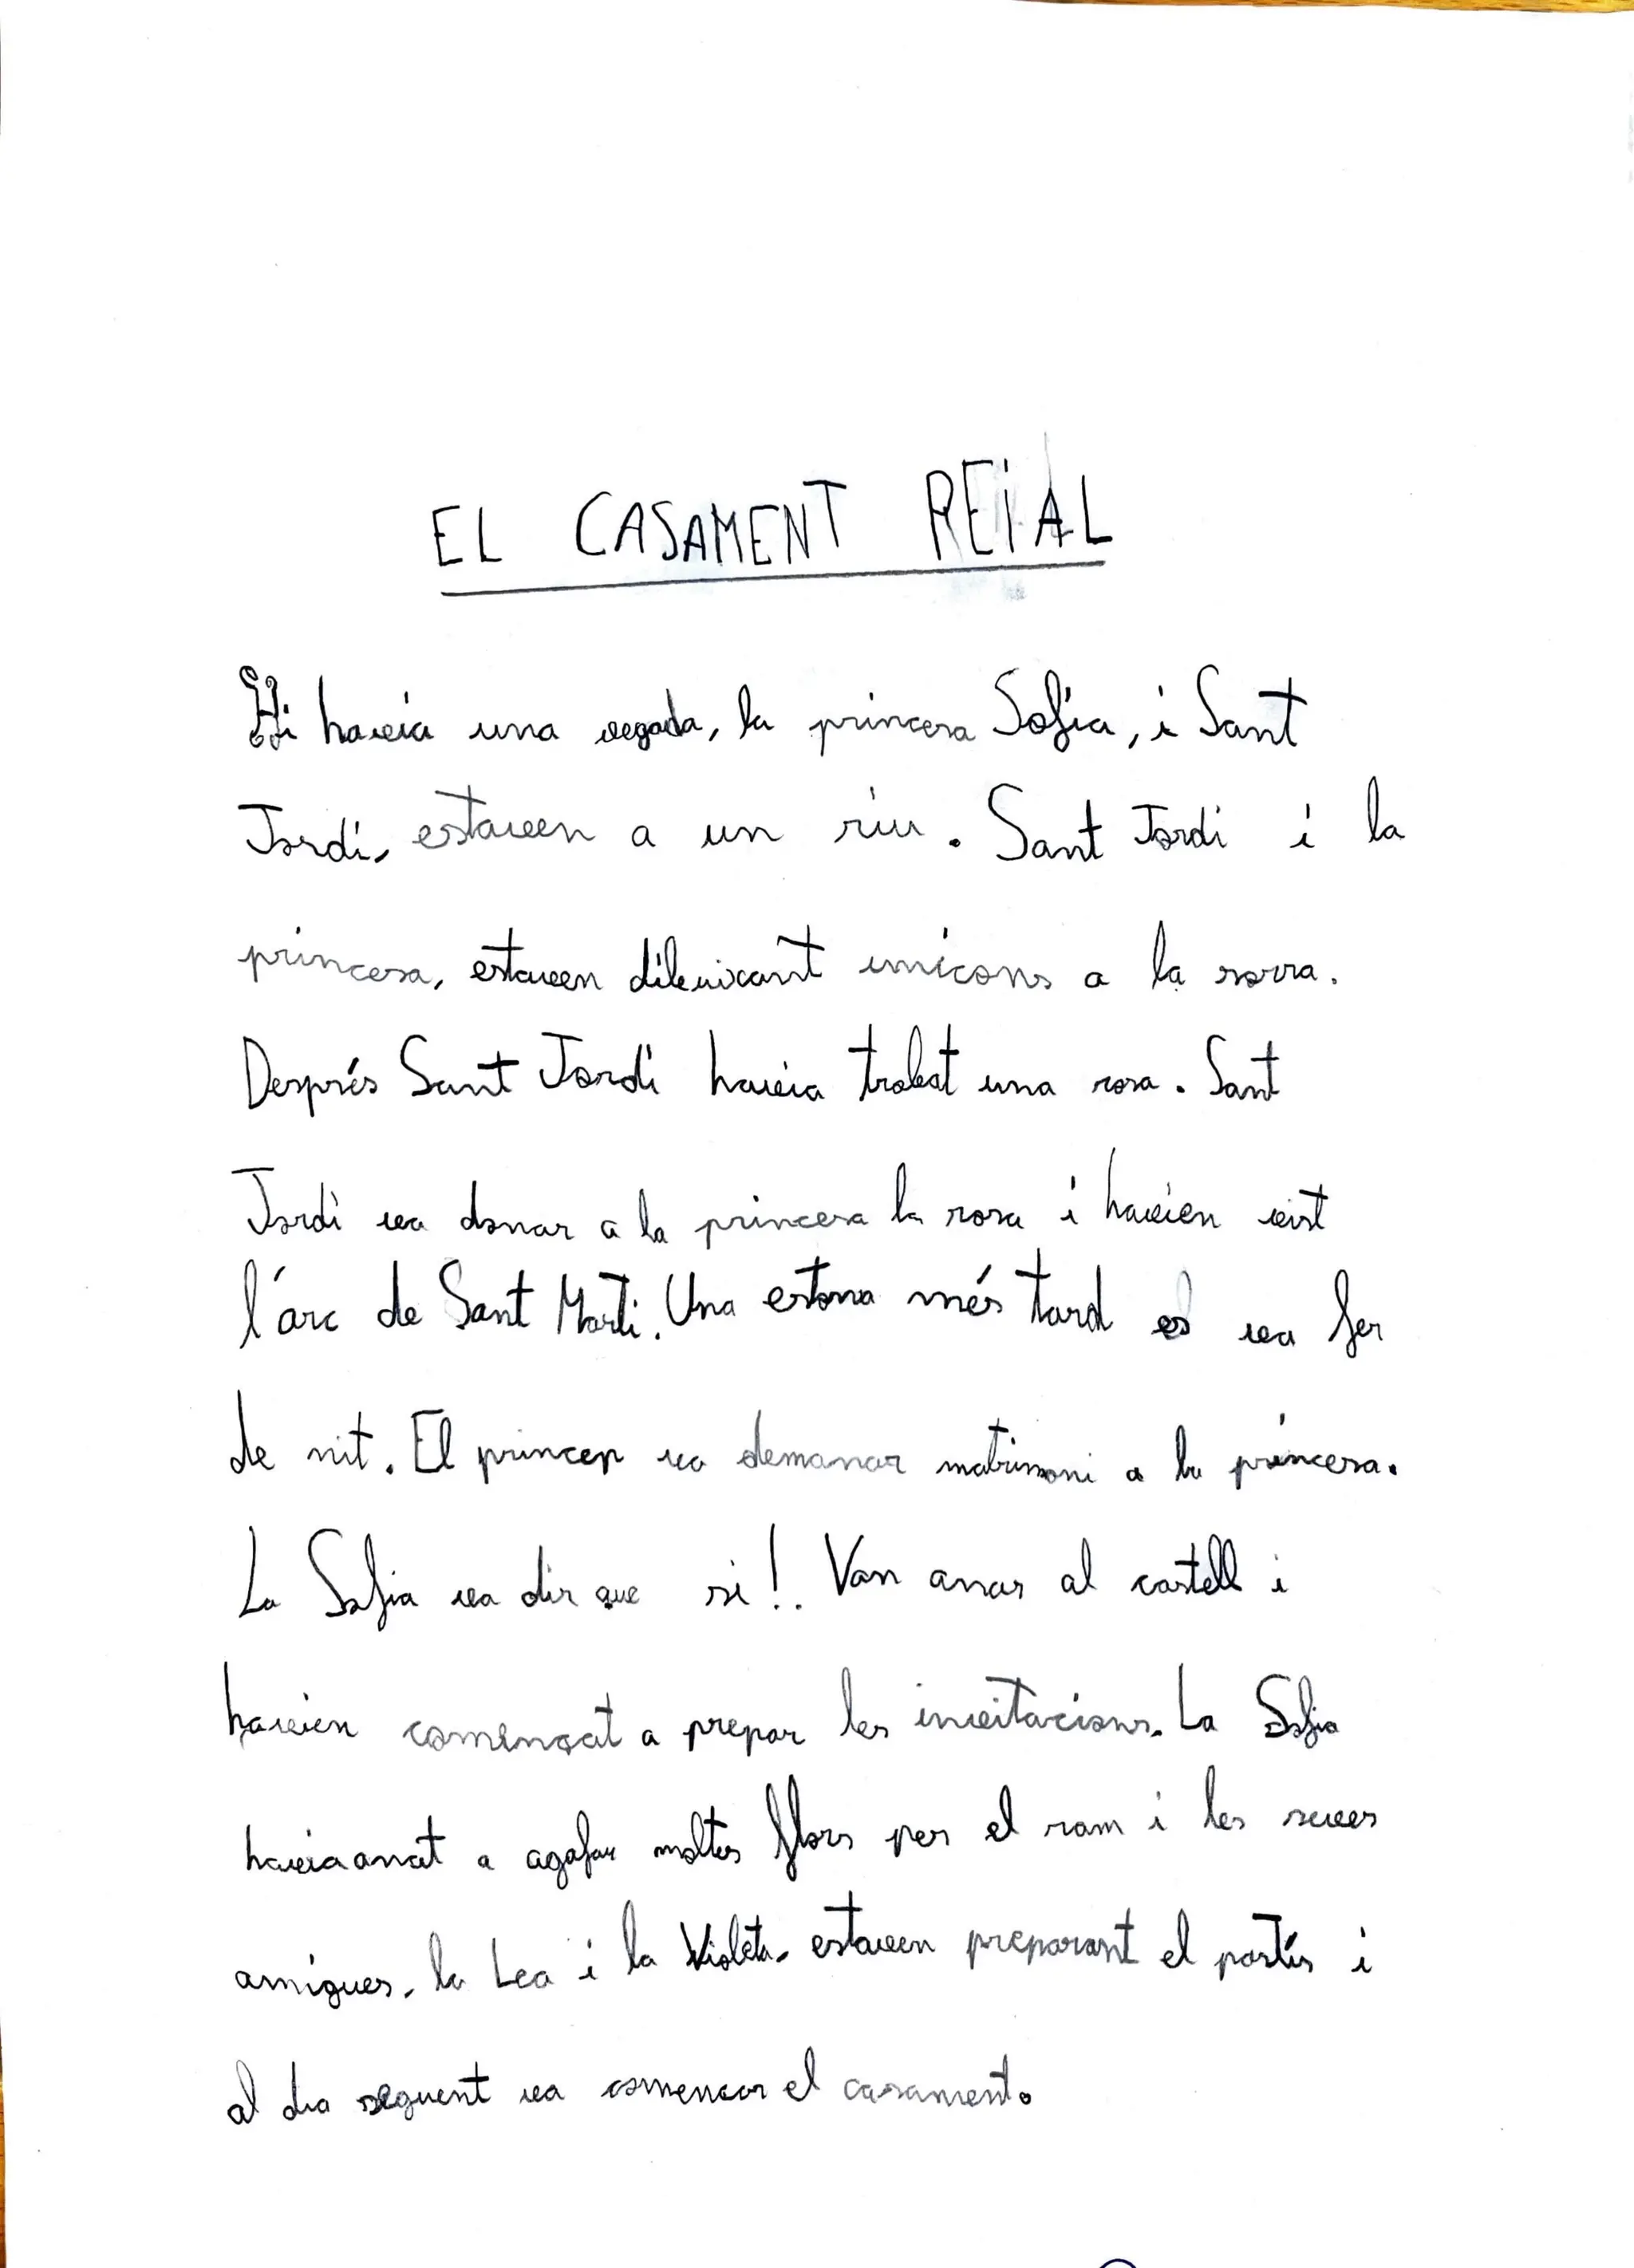 EL CASAMENT REiAL
Hi havia una vegada, la princesa Sofia, i Sant
Jordi, estaven a un riu. Sant Jordi i la
princesa, estaven dibuixant unicons a la sorra.
Després Sant Jordi havia trobat una rosa. Sant
Jordi va donar a la princesa la rosa i havien vist
l'arc de Sant Marti. Una estona més tard es va fer
de nit. El princep va demanar matrimoni a la princesa.
La Sofia va dir que si!. Van anar al castell i
havien començat a prepar les invitacions. La Sofia
havia anat a agafar moltes flors per el ram i les seves
amigues, la Lea i la Violeta, estaven preparant el pastís i
al dia seguent va comencar el casament.